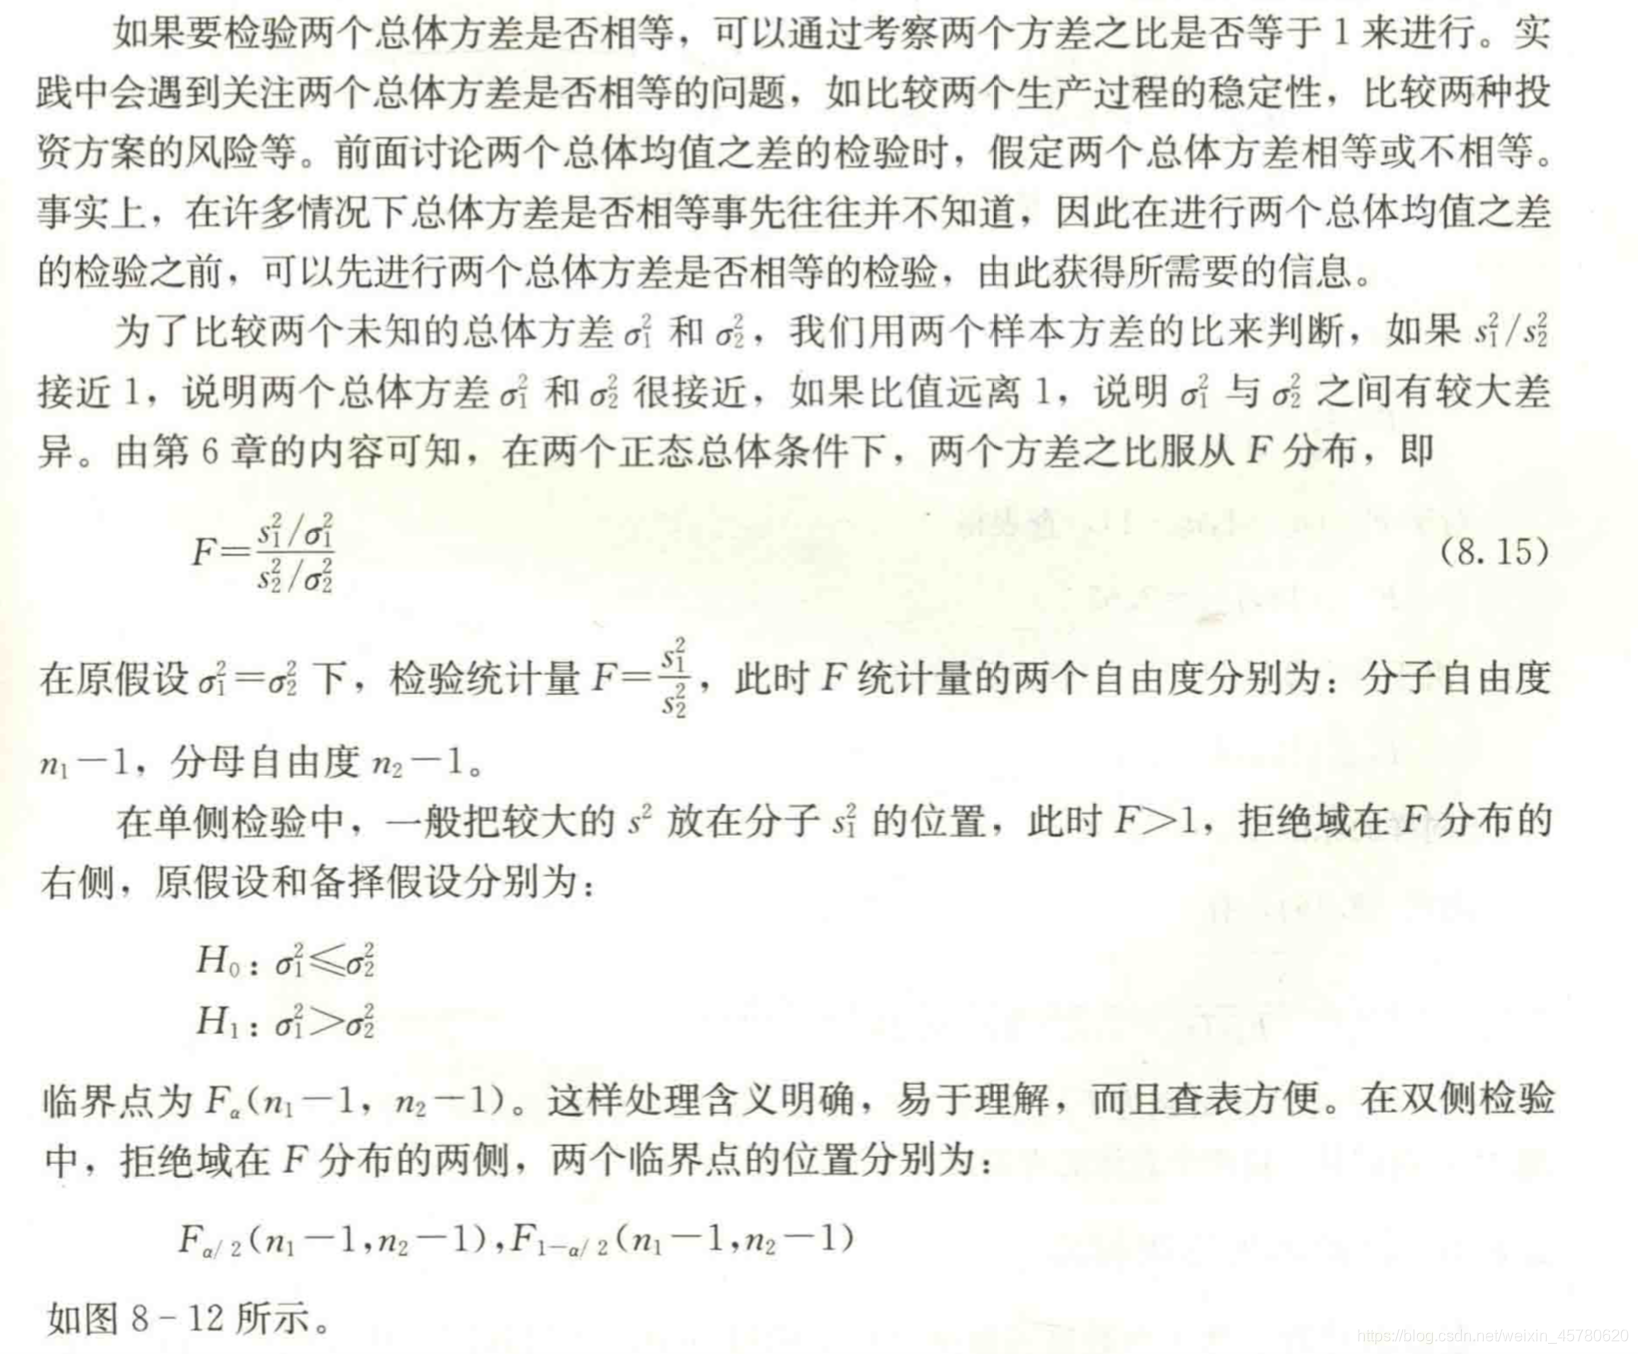 如果要检验两个总体方差是否相等，可以通过考察两个方差之比是否等于 1 来进行。实
践中会遇到关注两个总体方差是否相等的问题，如比较两个生产过程的稳定性，比较两种投
资方案的风险等。前面讨论两个总体均值之差的检验时，假定两个总体方差相等或不相等。
事实上，在许多情况下总体方差是否相等事先往往并不知道，因此在进行两个总体均值之差
的检验之前，可以先进行两个总体方差是否相等的检验，由此获得所需要的信息。
为了比较两个未知的总体方差 σ₁² 和 σ₂²，我们用两个样本方差的比来判断，如果 s₁²/s₂²
接近 1，说明两个总体方差 σ₁² 和 σ₂² 很接近，如果比值远离 1，说明 σ₁² 与 σ₂² 之间有较大差
异。由第 6 章的内容可知，在两个正态总体条件下，两个方差之比服从 F 分布，即
F = (s₁²/σ₁²)/(s₂²/σ₂²) (8.15)
在原假设 σ₁²=σ₂² 下，检验统计量 F=s₁²/s₂²，此时 F 统计量的两个自由度分别为：分子自由度
n₁－1，分母自由度 n₂－1。
在单侧检验中，一般把较大的 s² 放在分子 s₁² 的位置，此时 F>1，拒绝域在 F 分布的
右侧，原假设和备择假设分别为：
H₀：σ₁²≤σ₂²
H₁：σ₁²>σ₂²
临界点为 Fα(n₁－1，n₂－1)。这样处理含义明确，易于理解，而且查表方便。在双侧检验
中，拒绝域在 F 分布的两侧，两个临界点的位置分别为：
Fα/2(n₁－1,n₂－1),F1－α/2(n₁－1,n₂－1)
如图 8-12 所示。
https://blog.csdn.net/weixin_45780620